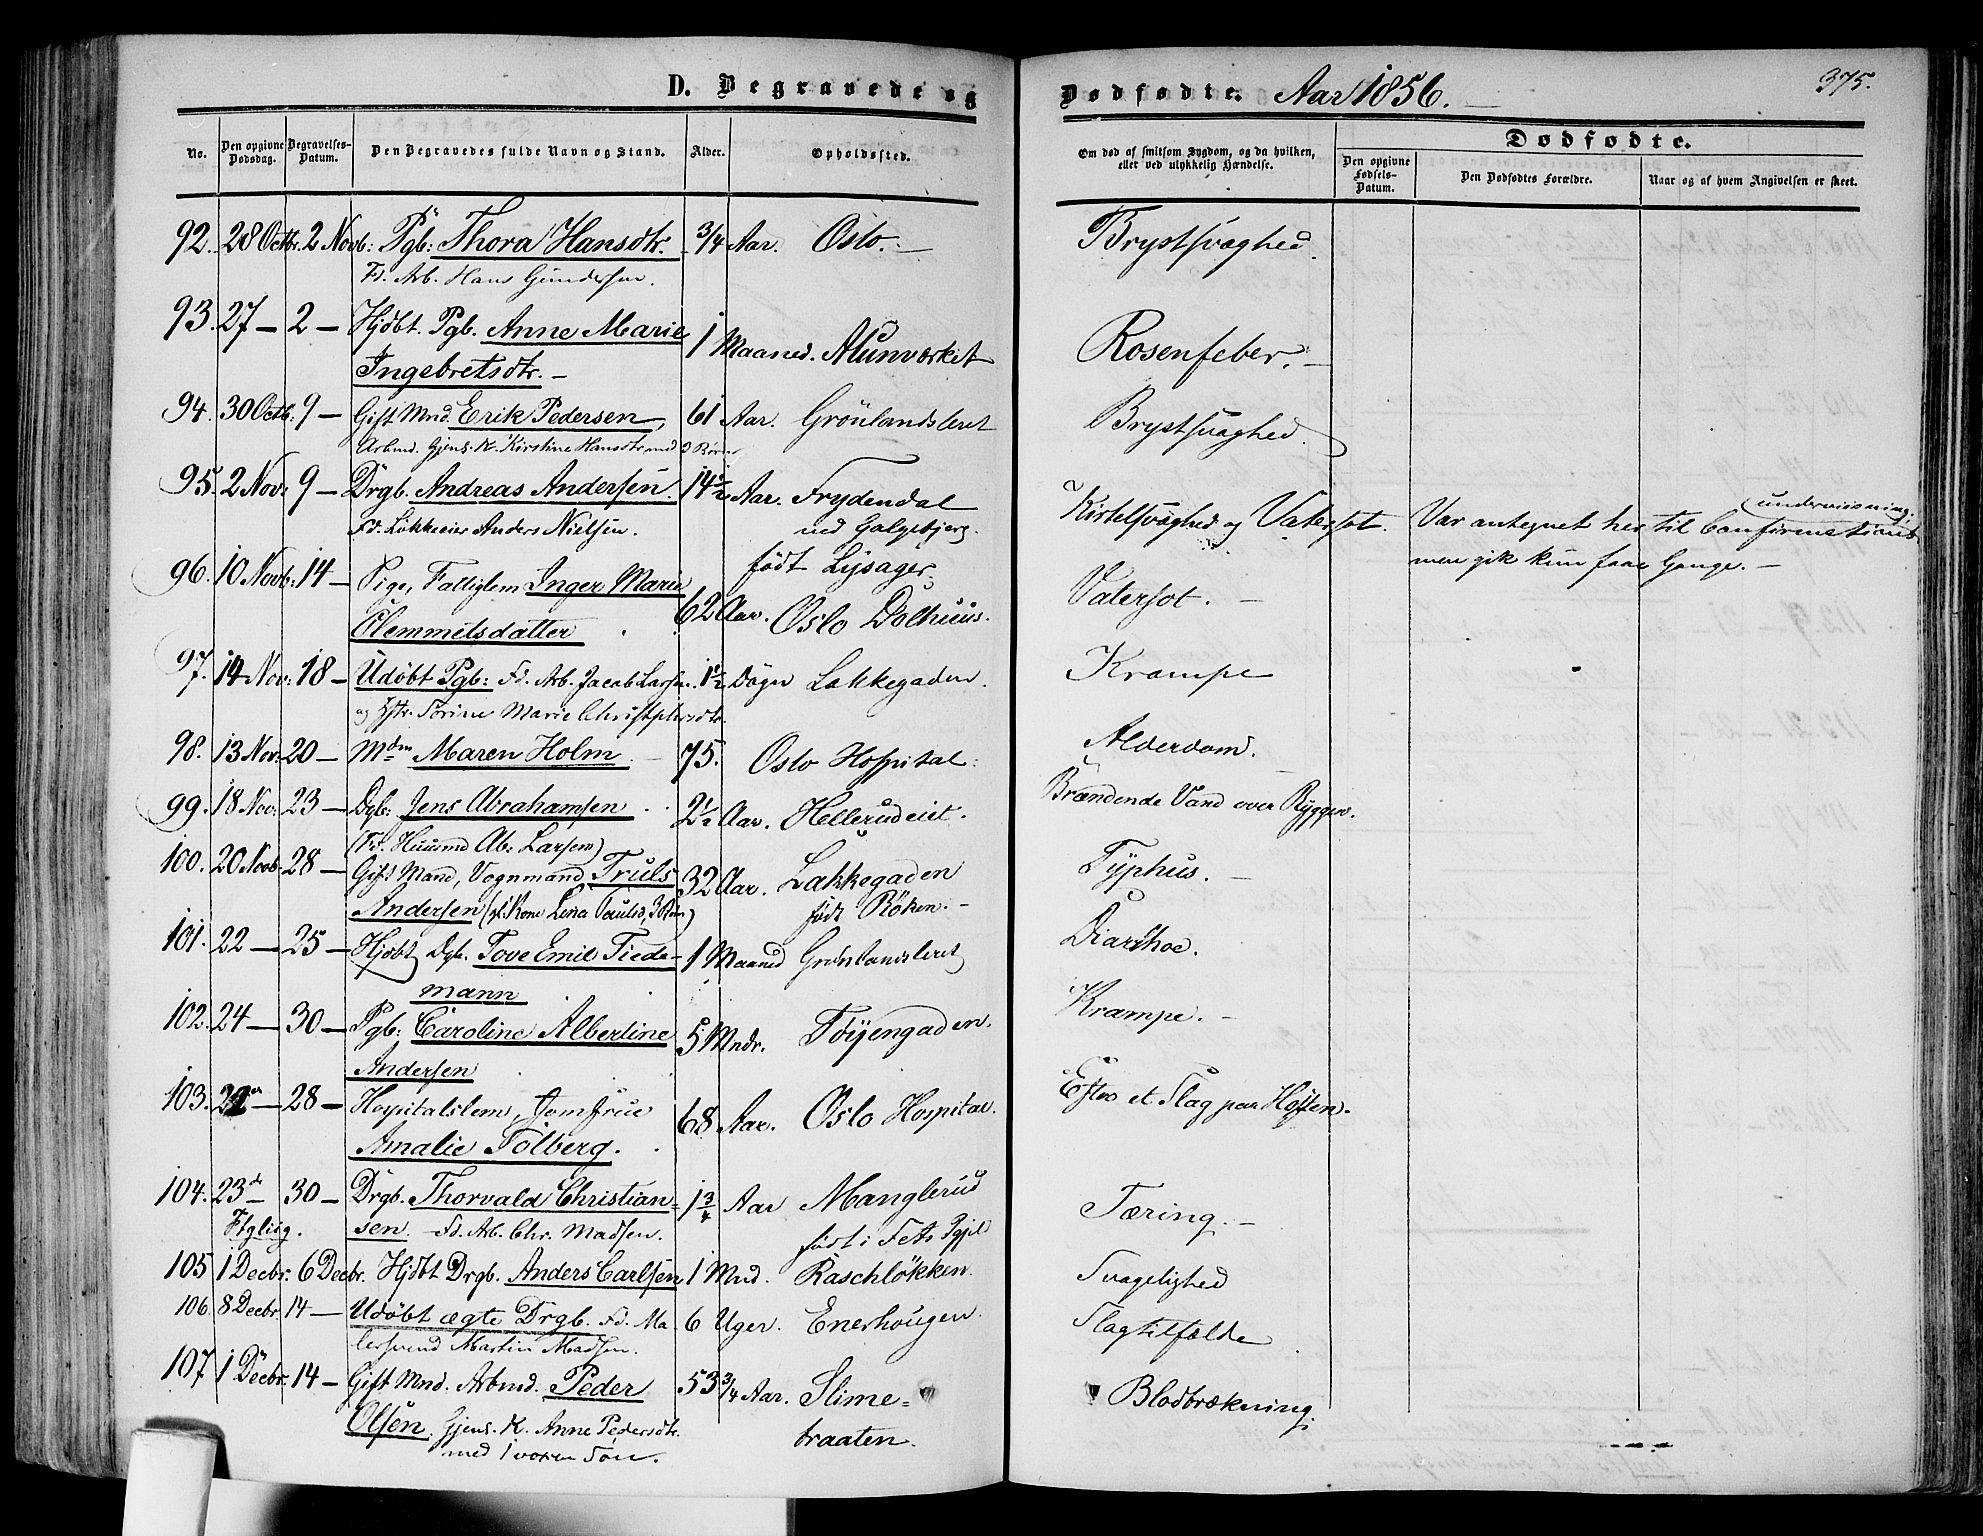 D. Begravede og Dødfødte. Aar 1856. 375.
No. Den opgivne Dødsdag. Begravelses-Datum. Den Begravedes fulde Navn og Stand. Alder. Opholdssted. Om død af smitsom Sygdom, og da hvilken, eller ved ulykkelig Hændelse. Dødfødte.
Den opgivne Fødsels-Datum. Den Dødfødtes Forældre. Naar og af hvem Angivelsen er skeet.
92. 28 Octbr. 2 Novb: Pgb: Thora Hansdtr. 3/4 Aar. Oslo. Brystsvaghed.
Fd. Arb. Hans Gundersen.
93. 27 — 2 — Hjdbt. Pgb. Anne Marie 1 Maaned. Alunværket Rosenfeber.
Ingebretsdtr. —
94. 30 Octb. 9 — Gift Mnd. Erik Pedersen, 61 Aar. Grönlandsleret Brystsvaghed.
Arbmd. Gjens. K. Kirstine Hansdtr med 3 Börn
95. 2 Nov: 9 — Drgb. Andreas Andersen. 14 1/2 Aar. Frydendal Kirtelsvaghed og Vatersot. Var antegnet her til Confirmations
underviisning,
Fd. Løkkeeier Anders Nielsen. ved Galgebjerg. men gik kun faae Gange. —
96. 10 Novb: 14 — Pige, Fattiglem Inger Marie 62 Aar. født Lysager, Vatersot. —
Clemmetsdatter Oslo Dolhuus.
97. 14 Nov: 18 — Udøbt Pgb: Fd. Arb. Jacob Larsen 1 1/2 Dögn Lakkegaden. Krampe
og Hstr. Torine Marie Christophersdtr.
98. 13 Nov: 20 — Mdm Maren Holm. 75. Oslo Hospital. Alderdom.
99. 18 Nov. 23 — Dgb: Jens Abrahamsen 2 1/2 Aar. Hellerudeiet. Brændende Vand over Ryggen.
(Fd. Huusmd Ab: Larsen)
100. 20 Novb. 28 — Gift Mand, Vognmand Truls 32 Aar. Lakkegaden Typhus. —
Andersen (gl. Kone Lena Pauls, 3 Børn) født Röken. —
101. 22 — 25 — Hjdbt Dgb. Tove Emil Tiede- 1 Maaned Grønlandsleret Diarrhoe.
mann
102. 24 — 30 — Pgb: Caroline Albertine 5 Mndr. Töyengaden. Krampe. —
Andersen
103. — 28 — Hospitalslem, Jomfrue 68 Aar. Oslo Hospital. Efter et Slag paa Hoften.
Amalie Tolberg.
104. 23de — 30 — Drgb. Thorvald Christian- 1 3/4 Aar Manglerud Tæring. —
sen. Fd. Arb. Chr. Madsen. født i Fets Pgjld
105 1 Decbr. 6 Decbr. Hjdbt Drgb. Anders Carlsen 1 Mnd. Raschløkken. Svagelighed
106. 8 Decbr. 14 — Udøbt ægte Drgb. Fd. Ma- 6 Uger. Enerhougen. Slagtilfælde
lersvend Martin Madsen.
107. 1 Decbr. 14 — Gift Mnd. Arbmd. Peder 53 3/4 Aar. Slime- Blodbrækning,
Olsen, Gjens. K. Anne Pedersdtr. braaten.
med 1 voxen Søn.